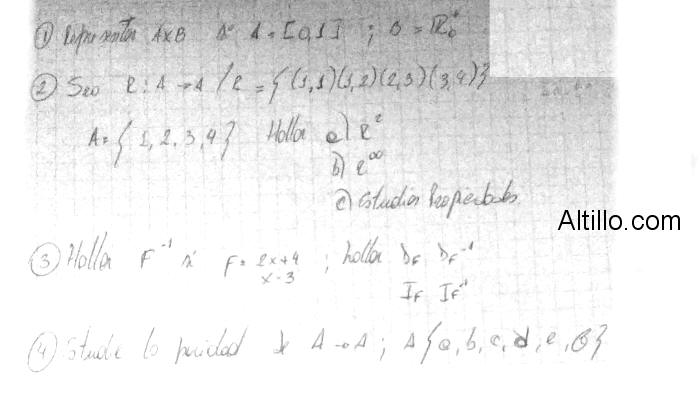 ① Representar AxB si A = [0,1] ; B = ℝ₀⁺
② Sea R: A → A / R = {(1,1)(1,2)(2,3)(3,4)}
A = {1, 2, 3, 4} Hallar a) R²
b) R^∞
c) Estudiar Propiedades.
Altillo.com
③ Hallar F⁻¹ si F = 2x+4 / x-3 ; hallar D_F D_F⁻¹
I_F I_F⁻¹
④ Estudie la paridad de A → A ; A {a, b, c, d, e, }